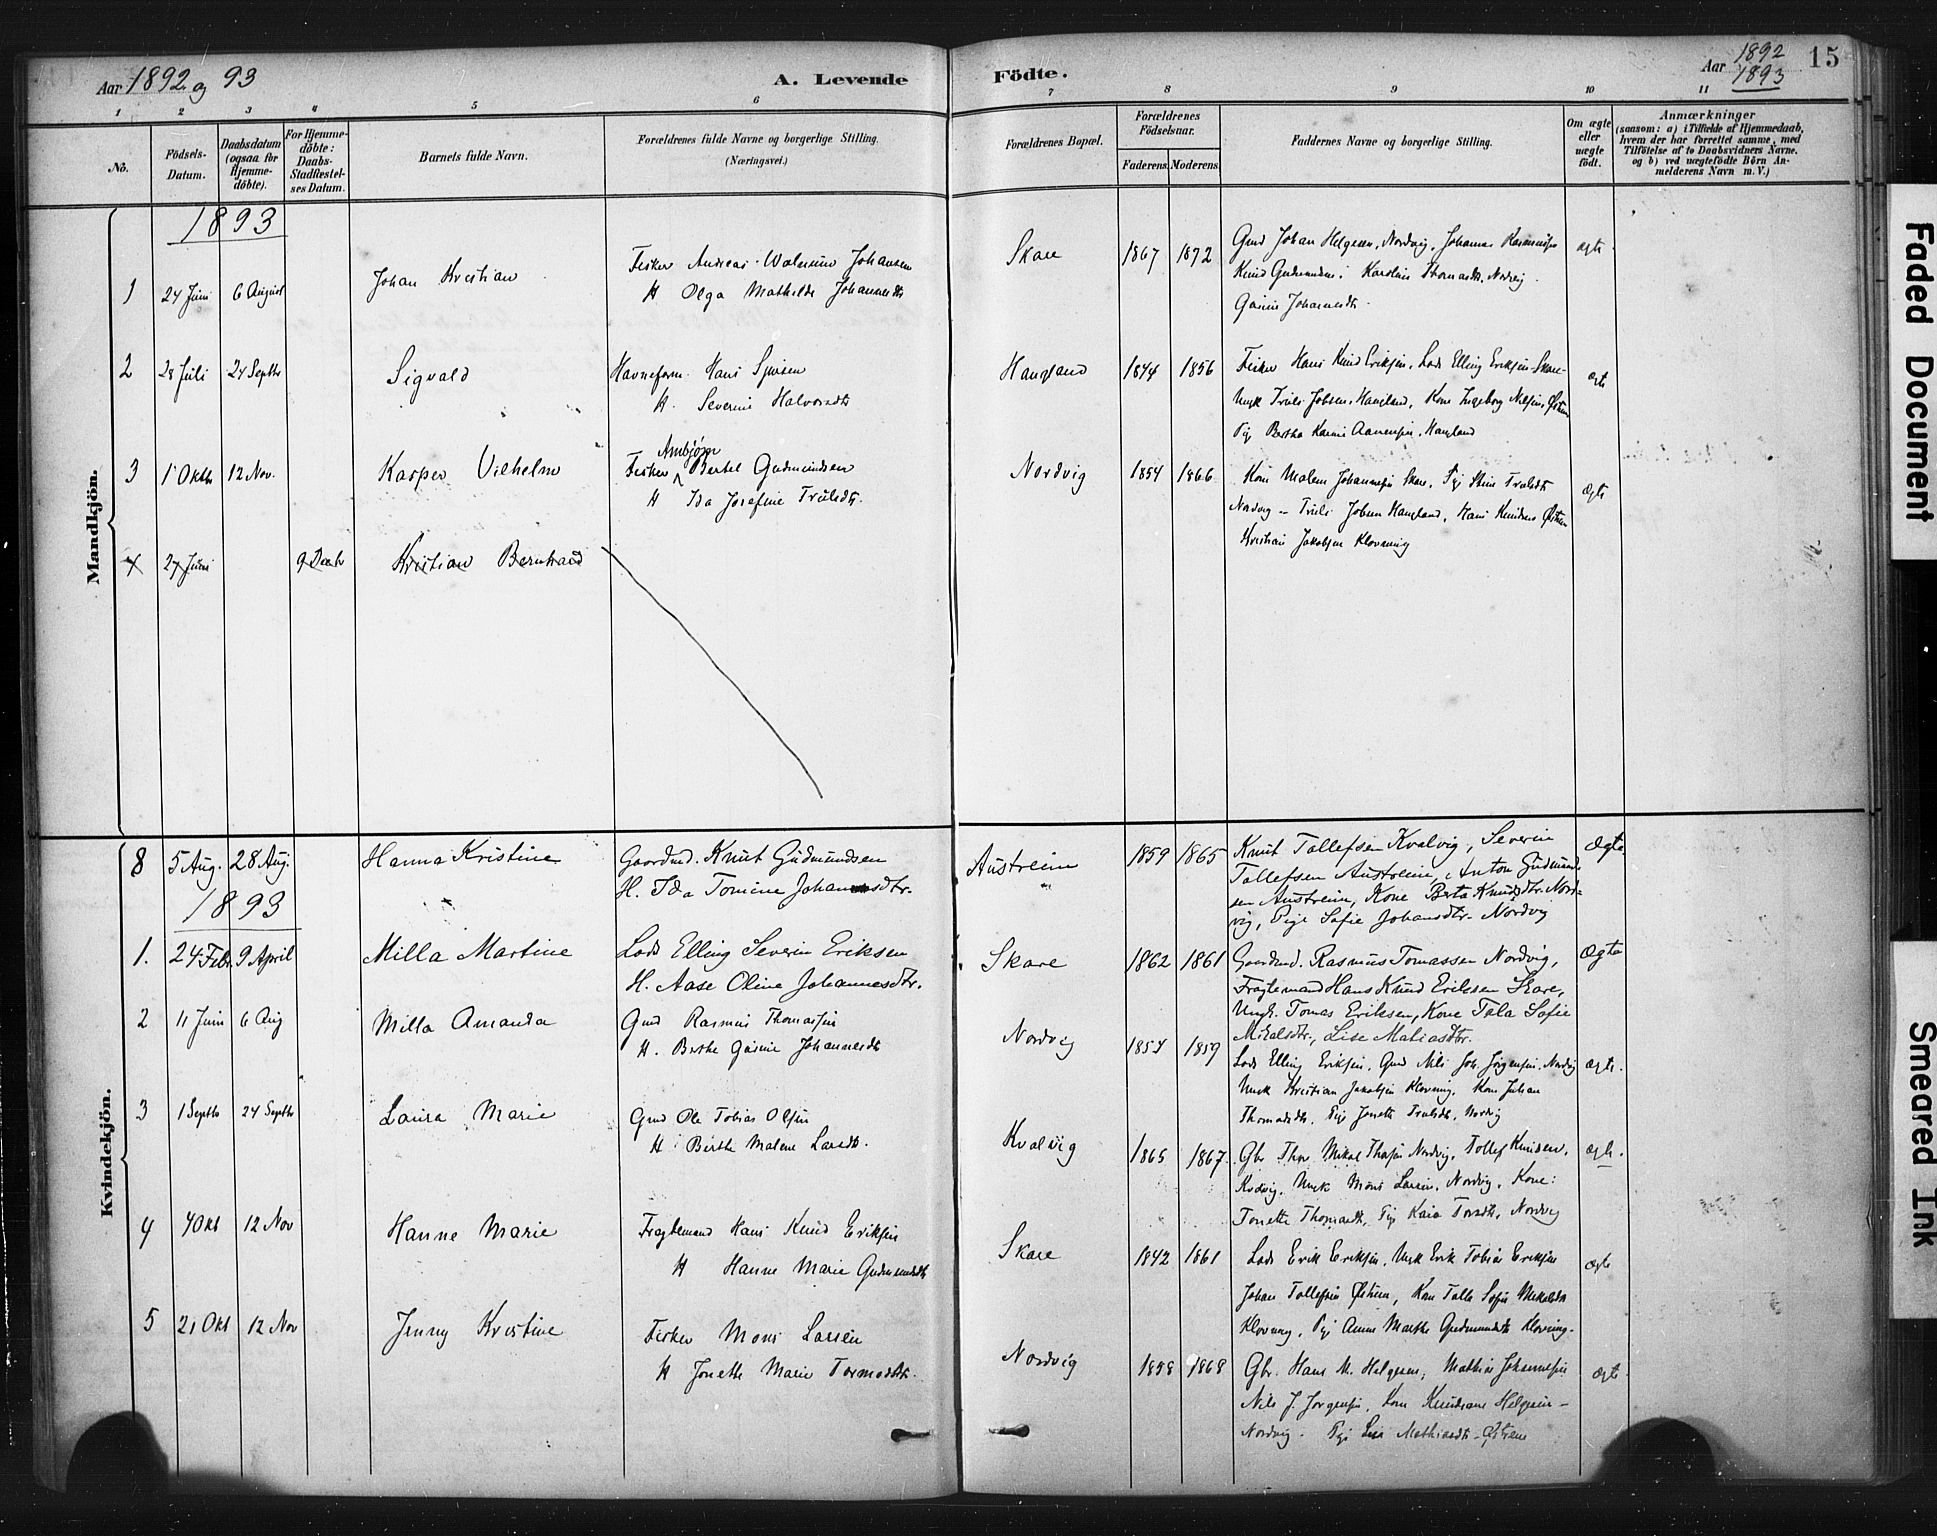 Aar 1892 og 93
A. Levende Födte.
Aar 1892
1893
15
1 2 3 4 5 6 7 8 9 10 11
No.
Födsels-Datum.
Daabsdatum (ogsaa for Hjemme-döbte).
For Hjemme-döbte: Daabs-Stadfæstel-ses Datum.
Barnets fulde Navn.
Forældrenes fulde Navne og borgerlige Stilling.
(Næringsvei.)
Forældrenes Bopæl.
Forældrenes Födselsaar.
Faderens. Moderens.
Faddernes Navne og borgerlige Stilling.
Om ægte eller uægte født.
Anmærkninger
(saasom: a) i Tilfælde af Hjemmedaab, hvem der har forrettet samme, med Tilföielse af to Daabsvidners Navne, og b) ved uægtefödte Börn An-melderens Navn m. V.)
Mandkjön.
1893
1 24 Juni 6 August Johan Kristian
Fisker Andreas Johansen
H Olga Mathilde Johannesdtr
Skare 1867 1872
Gmd Johan Helgesen, Nordvig, Johannes
Knud Gudmundsen Thomasdtr, Nordvig
Johannesdtr.
ægte
2 28 Juli 24 Septbr Sigvald
Hans
H. Severine Halvorsdtr
Haugland 1844 1856
Fisker Hans Knud Eriksen, Lods Elling Eriksen Skare
Ungk Truls Jobsen, Haugland, Kone Ingeborg Nilsen,
Pige Bertha Aanensen, Haugland
ægte
3 1 Oktbr 12 Nov. Kasper Vilhelm
Fisker Bertel Gudmundsen
H Ida Josefine Trulsdtr.
Nordvig 1854 1866
Kone Malene Skare, Pige Stine Trulsdtr
Nordvig – Truls Jobsen Haugland, Hans Knudsen
Kristian Jakobsen Klovning
ægte
4 27 Juni 9 Decbr Kristian Bernhard
Kvindekjön.
8 5 Aug. 28 Aug. Hanna Kristine
Gaardmd. Knut Gudmundsen
H. Ida Tomine Johannesdtr.
Austreim 1859 1865
Knut Tollefsen Kvalvig, Severin
Tollefsen Austreim, Anton Gudmund-
sen Austreim, Kone Berta Knudsdtr. Nord-
vig, Pige Sofie Johansdtr. Nordvig
Ægte
1893
1. 24 Febr. 9 April Milla Martine
Lods Elling Severin Eriksen
H. Aase Oline Johannesdtr.
Skare 1862 1861
Gaardmd. Rasmus Tomassen Nordvig,
Fragtemand Hans Knud Eriksen Skare,
Ungk. Tomas Eriksen, Kone Tala Sofie
Mikalsdtr., Lise Matiasdtr.
Ægte
2 11 Juni 6 Aug Milla Amanda
Gmd Rasmus Thomassen
H. Berthe Johannesdtr
Nordvig 1859
Lods Elling Eriksen, Gmd Nils Joh. Jörgensen, Nordvig
Ungk Kristian Jakobsen Klovning, Kone
Thomasdtr, Pige Jonette Trulsdtr, Nordvig
ægte.
3 1 Septbr 24 Septbr Laura Marie
Gmd Ole Tobias Olsen
H Berthe Malene Larsdtr.
Kvalvig 1865 1867.
Gbr Thor Mikal Nordvig, Tollef Knudsen,
Kvalvig, Ungk Mons Larsen, Nordvig, Kone:
Tonette Thomasdtr, Pige Kaia Nordvig
ægte.
4 4 Okt 12 Nov Hanne Marie
Fragtemand Hans Knud Eriksen
H Hanne Marie Gudmundsdtr
Skare 1842 1861
Lods Erik Eriksen, Ungk Erik Tobias Eriksen
Johan Tollefsen Kone Talla Sofie Mikalsdtr
Klovning, Pige Anne Marthe Gudmundsdtr Klovning.
ægte
5 21 Okt 12 Nov Jenny Kristine
Fisker Mons Larsen
H Jonette Marie Tormodsdtr.
Nordvig 1858 1868
Gbr. Hans M. Helgesen, Mathias Johannesen
Nils J. Jorgensen, Kone Helgesen –
Nordvig. Pige Lise Mathiasdtr –
ægte
Faded Document
Smeared Ink